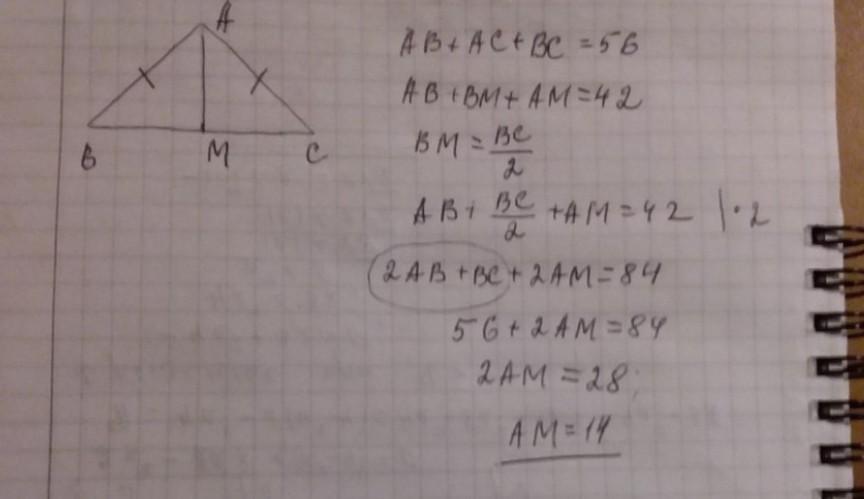 A
B M C
AB+AC+BC=56
AB+BM+AM=42
BM=BC/2
AB+BC/2+AM=42 |·2
2AB+BC+2AM=84
56+2AM=84
2AM=28
AM=14